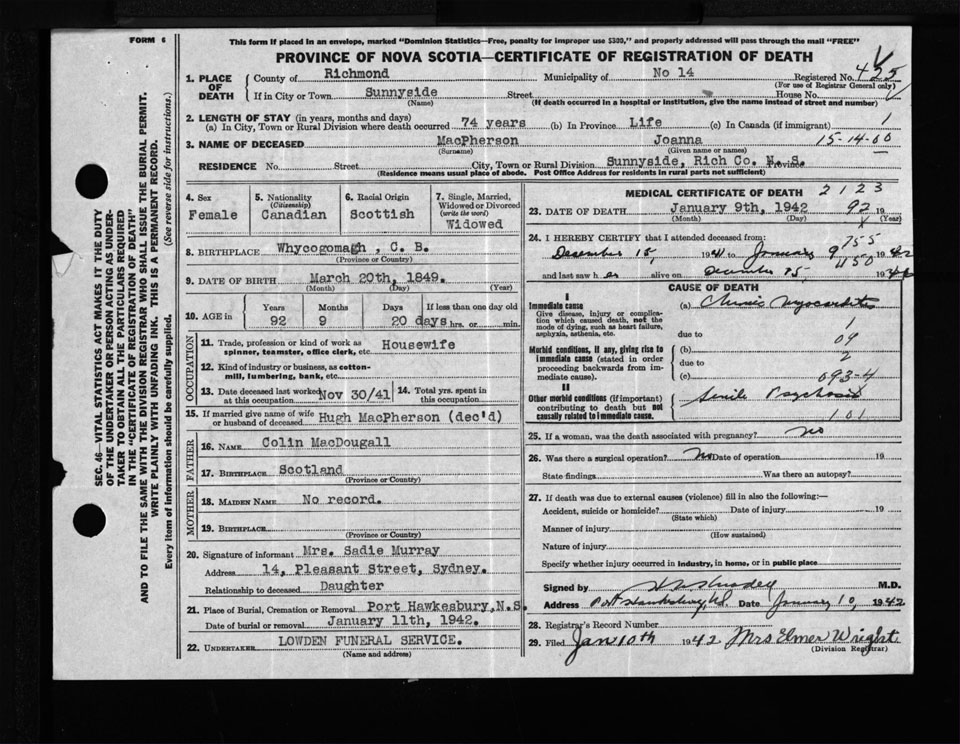 FORM 6
This form if placed in an envelope, marked "Dominion Statistics—Free, penalty for improper use $300," and properly addressed will pass through the mail "FREE"
PROVINCE OF NOVA SCOTIA—CERTIFICATE OF REGISTRATION OF DEATH
1. PLACE OF DEATH County of Richmond Municipality of No 14 Registered No. 425
(For use of Registrar General only)
If in City or Town Sunnyside Street House No.
(Name) (If death occurred in a hospital or institution, give the name instead of street and number)
2. LENGTH OF STAY (in years, months and days)
(a) In City, Town or Rural Division where death occurred 74 years (b) In Province Life (c) In Canada (if immigrant) 1
3. NAME OF DECEASED MacPherson Joanna 15-14-00
(Surname) (Given name or names)
RESIDENCE No. Street City, Town or Rural Division Sunnyside, Rich Co. N. S. Province
(Residence means usual place of abode. Post Office Address for residents in rural parts not sufficient)
4. Sex 5. Nationality (Citizenship) 6. Racial Origin 7. Single, Married, Widowed or Divorced (write the word)
Female Canadian Scottish Widowed
8. BIRTHPLACE Whycogomagh, C. B.
(Province or Country)
9. DATE OF BIRTH March 20th, 1849.
(Month) (Day) (Year)
10. AGE in Years Months Days If less than one day old
92 9 20 days hrs. or min.
OCCUPATION
11. Trade, profession or kind of work as spinner, teamster, office clerk, etc. Housewife
12. Kind of industry or business, as cotton-mill, lumbering, bank, etc.
13. Date deceased last worked at this occupation Nov 30/41 14. Total yrs. spent in this occupation
15. If married give name of wife or husband of deceased Hugh MacPherson (dec'd)
FATHER
16. NAME Colin MacDougall
17. BIRTHPLACE Scotland
(Province or Country)
MOTHER
18. MAIDEN NAME No record.
19. BIRTHPLACE
(Province or Country)
20. Signature of informant Mrs. Sadie Murray
Address 14, Pleasant Street, Sydney.
Relationship to deceased Daughter
21. Place of Burial, Cremation or Removal Port Hawkesbury, N.S.
Date of burial or removal January 11th, 1942.
22. UNDERTAKER LOWDEN FUNERAL SERVICE.
(Name and address)
MEDICAL CERTIFICATE OF DEATH 2123
23. DATE OF DEATH January 9th, 1942 92 19
(Month) (Day) (Year)
24. I HEREBY CERTIFY that I attended deceased from: 755
December 15, 1941 to January 9 1942
450
and last saw h er alive on December 15, 19
CAUSE OF DEATH
I
Immediate cause (a) Chronic Myocarditis
Give disease, injury or complication which caused death, not the mode of dying, such as heart failure, asphyxia, asthenia, etc.
1
due to 09
Morbid conditions, if any, giving rise to immediate cause (stated in order proceeding backwards from immediate cause). (b) 2
due to
(c) 093-4
II
Other morbid conditions (if important) contributing to death but not causally related to immediate cause. Senile Psychosis
101
25. If a woman, was the death associated with pregnancy? no
26. Was there a surgical operation? No Date of operation 19
State findings Was there an autopsy?
27. If death was due to external causes (violence) fill in also the following:—
Accident, suicide or homicide? Date of injury 19
(State which)
Manner of injury
(How sustained)
Nature of injury
Specify whether injury occurred in industry, in home, or in public place
Signed by M.D.
Address Port Hawkesbury, Date January 10, 1942
28. Registrar's Record Number
29. Filed Jan 10th 1942 Mrs Elmer Wright
(Division Registrar)
SEC. 46—VITAL STATISTICS ACT MAKES IT THE DUTY
OF THE UNDERTAKER OR PERSON ACTING AS UNDER-
TAKER TO OBTAIN ALL THE PARTICULARS REQUIRED
IN THE "CERTIFICATE OF REGISTRATION OF DEATH"
AND TO FILE THE SAME WITH THE DIVISION REGISTRAR WHO SHALL ISSUE THE BURIAL PERMIT.
WRITE PLAINLY WITH UNFADING INK. THIS IS A PERMANENT RECORD.
Every item of Information should be carefully supplied. (See reverse side for instructions.)